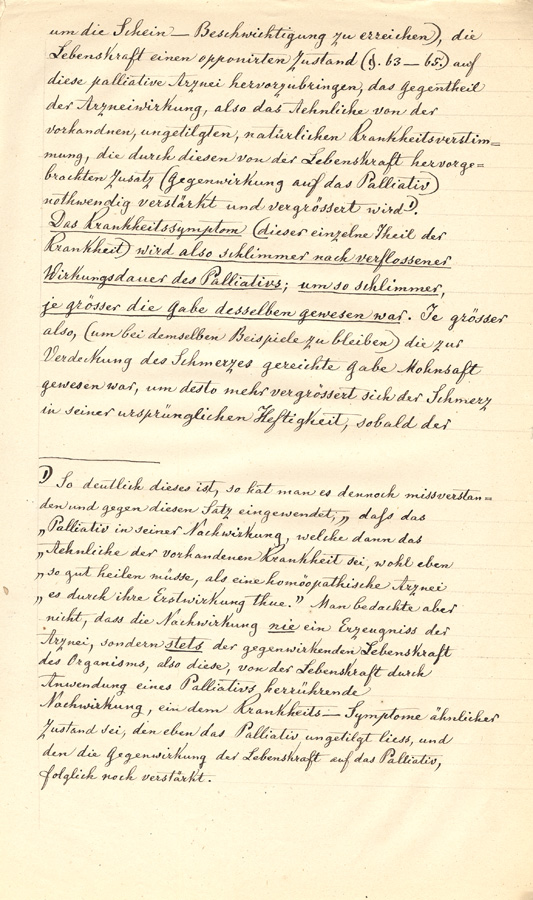 um die Schein — Beschwichtigung zu erreichen), die
Lebenskraft einen opponirten Zustand (§. 63 — 65.) auf
diese palliative Arznei hervorzubringen, das Gegentheil
der Arzneiwirkung, also das Aehnliche von der
vorhandnen, ungetilgten, natürlichen Krankheitsverstim=
mung, die durch diesen von der Lebenskraft hervorge=
brachten Zusatz (Gegenwirkung auf das Palliativ)
nothwendig verstärkt und vergrössert wird¹).
Das Krankheitssymptom (dieser einzelne Theil der
Krankheit) wird also schlimmer nach verflossener
Wirkungsdauer des Palliativs; um so schlimmer,
je grösser die Gabe desselben gewesen war. Je grösser
also, (um bei demselben Beispiele zu bleiben) die zur
Verdeckung des Schmerzes gereichte Gabe Mohnsaft
gewesen war, um desto mehr vergrössert sich der Schmerz
in seiner ursprünglichen Heftigkeit, sobald der
1) So deutlich dieses ist, so hat man es dennoch missverstan=
den und gegen diesen Satz eingewendet, „ daſs das
„Palliativ in seiner Nachwirkung, welche dann das
„Aehnliche der vorhandenen Krankheit sei, wohl eben
„so gut heilen müsse, als eine homöopathische Arznei
„es durch ihre Erstwirkung thue.” Man bedachte aber
nicht, dass die Nachwirkung nie ein Erzeugniss der
Arznei, sondern stets der gegenwirkenden Lebenskraft
des Organisms, also diese, von der Lebenskraft durch
Anwendung eines Palliativs herrührende
Nachwirkung, ein dem Krankheits — Symptome ähnlicher
Zustand sei, den eben das Palliativ ungetilgt liess, und
den die Gegenwirkung der Lebenskraft auf das Palliativ,
folglich noch verstärkt.